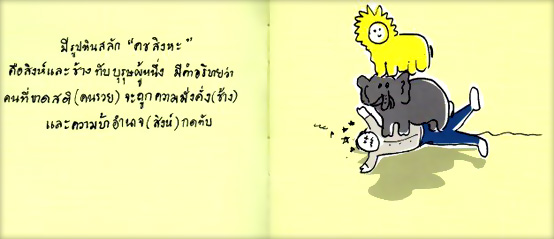 มีรูปหินสลัก "คชสิงหะ"
คือสิงห์และช้าง ทับบุรุษผู้หนึ่ง มีคำอธิบายว่า
คนที่ขาดสติ (คนรวย) จะถูกความมั่งคั่ง (ช้าง)
และความบ้าอำนาจ (สิงห์) กดทับ